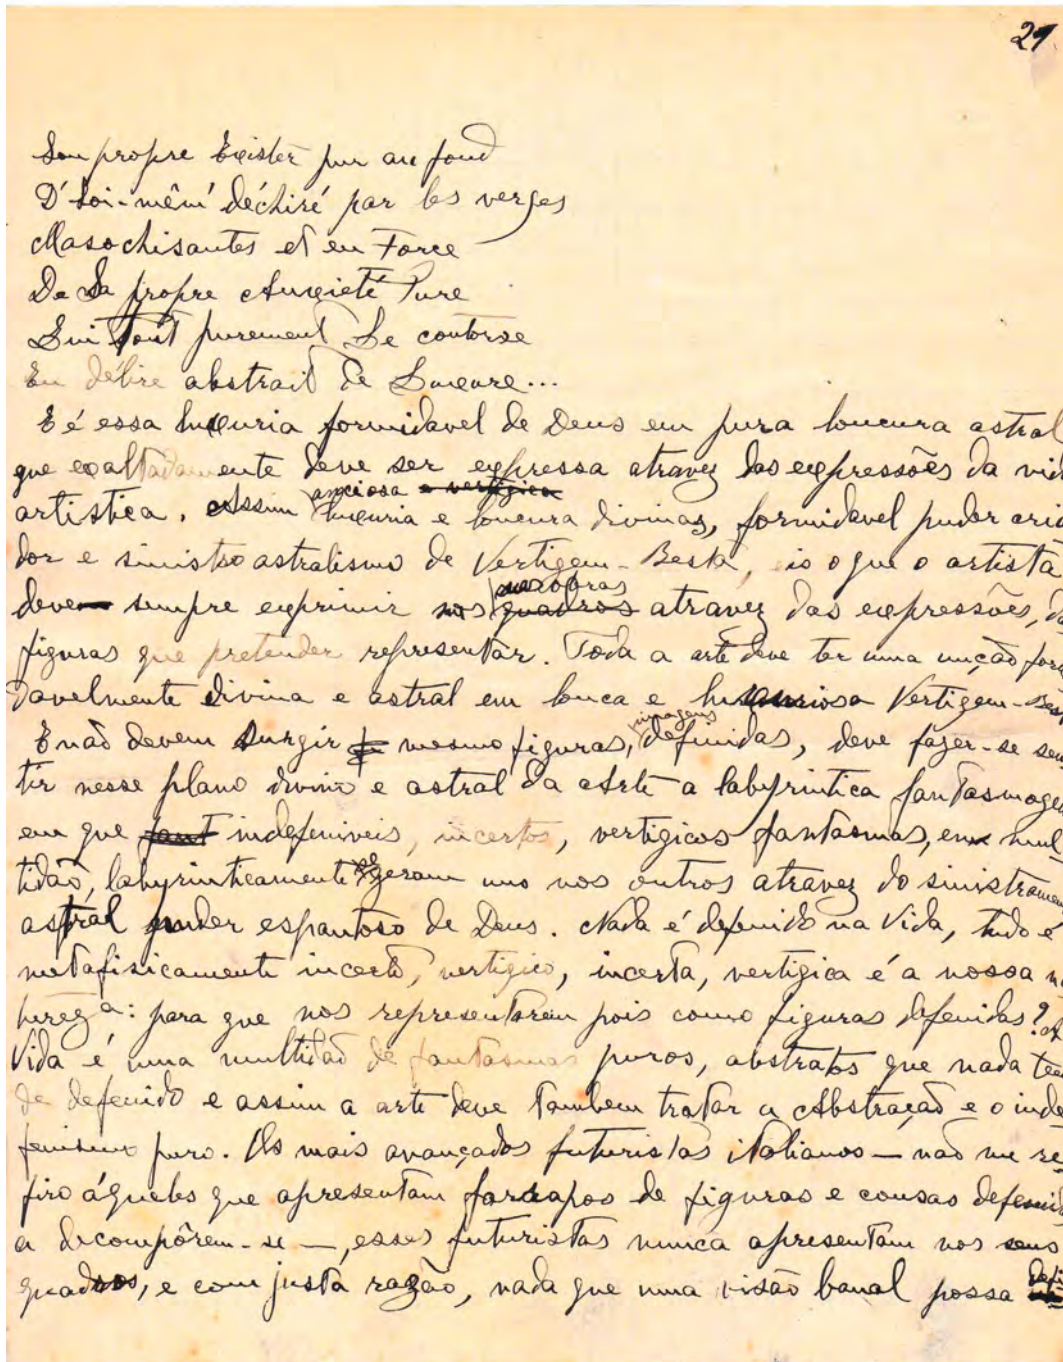 29.
Son propre Exister pur au fond
D'Soi-mêm' déchiré par les verges
Masochisantes et en Force
De Sa propre Anxieté Pure
Qui Tout purement Se contorse
En délire abstrait de Luxure...
E é essa luxuria formidavel de Deus em pura loucura astral
que exaltadamente deve ser expressa atravez das expressões da vid
artistica. Assim anciosa a vertigica luxuria e loucura divinas, formidavel pudor cria
dor e sinistro astralismo de Vertigem-Besta, eis o que o artista
deve sempre exprimir nas suas obras quadros atravez das expressões, da
figuras que pretender representar. Toda a arte deve ter uma unção form
davelmente divina e astral em louca e luxuriosa Vertigem-Bes
E não devem surgir mesmo figuras, imagens definidas, deve fazer-se sen
tir nesse plano divino e astral da Arte a labyrintica fantasmagor
em que fant indefeniveis, incertos, vertigicos fantasmas, em mul-
tidão, labyrinticamente se geram uno nos outros atravez do sinistramen
astral poder espantoso de Deus. Nada é defenido na Vida, tudo é
metafisicamente incerto, vertigico, incerta, vertigica é a nossa na
tureza: para que nos representarem pois como figuras defenidas? A
Vida é uma multidão de fantasmas puros, abstratos que nada tee
de defenido e assim a arte deve tambem tratar a Abstração e o inde
fenismo puro. Os mais avançados futuristas italianos — não me re-
firo áqueles que apresentam farrapos de figuras e cousas defenid
a decompôrem-se —, esses futuristas nunca apresentam nos seus
quadros, e com justa razão, nada que uma visão banal possa defi